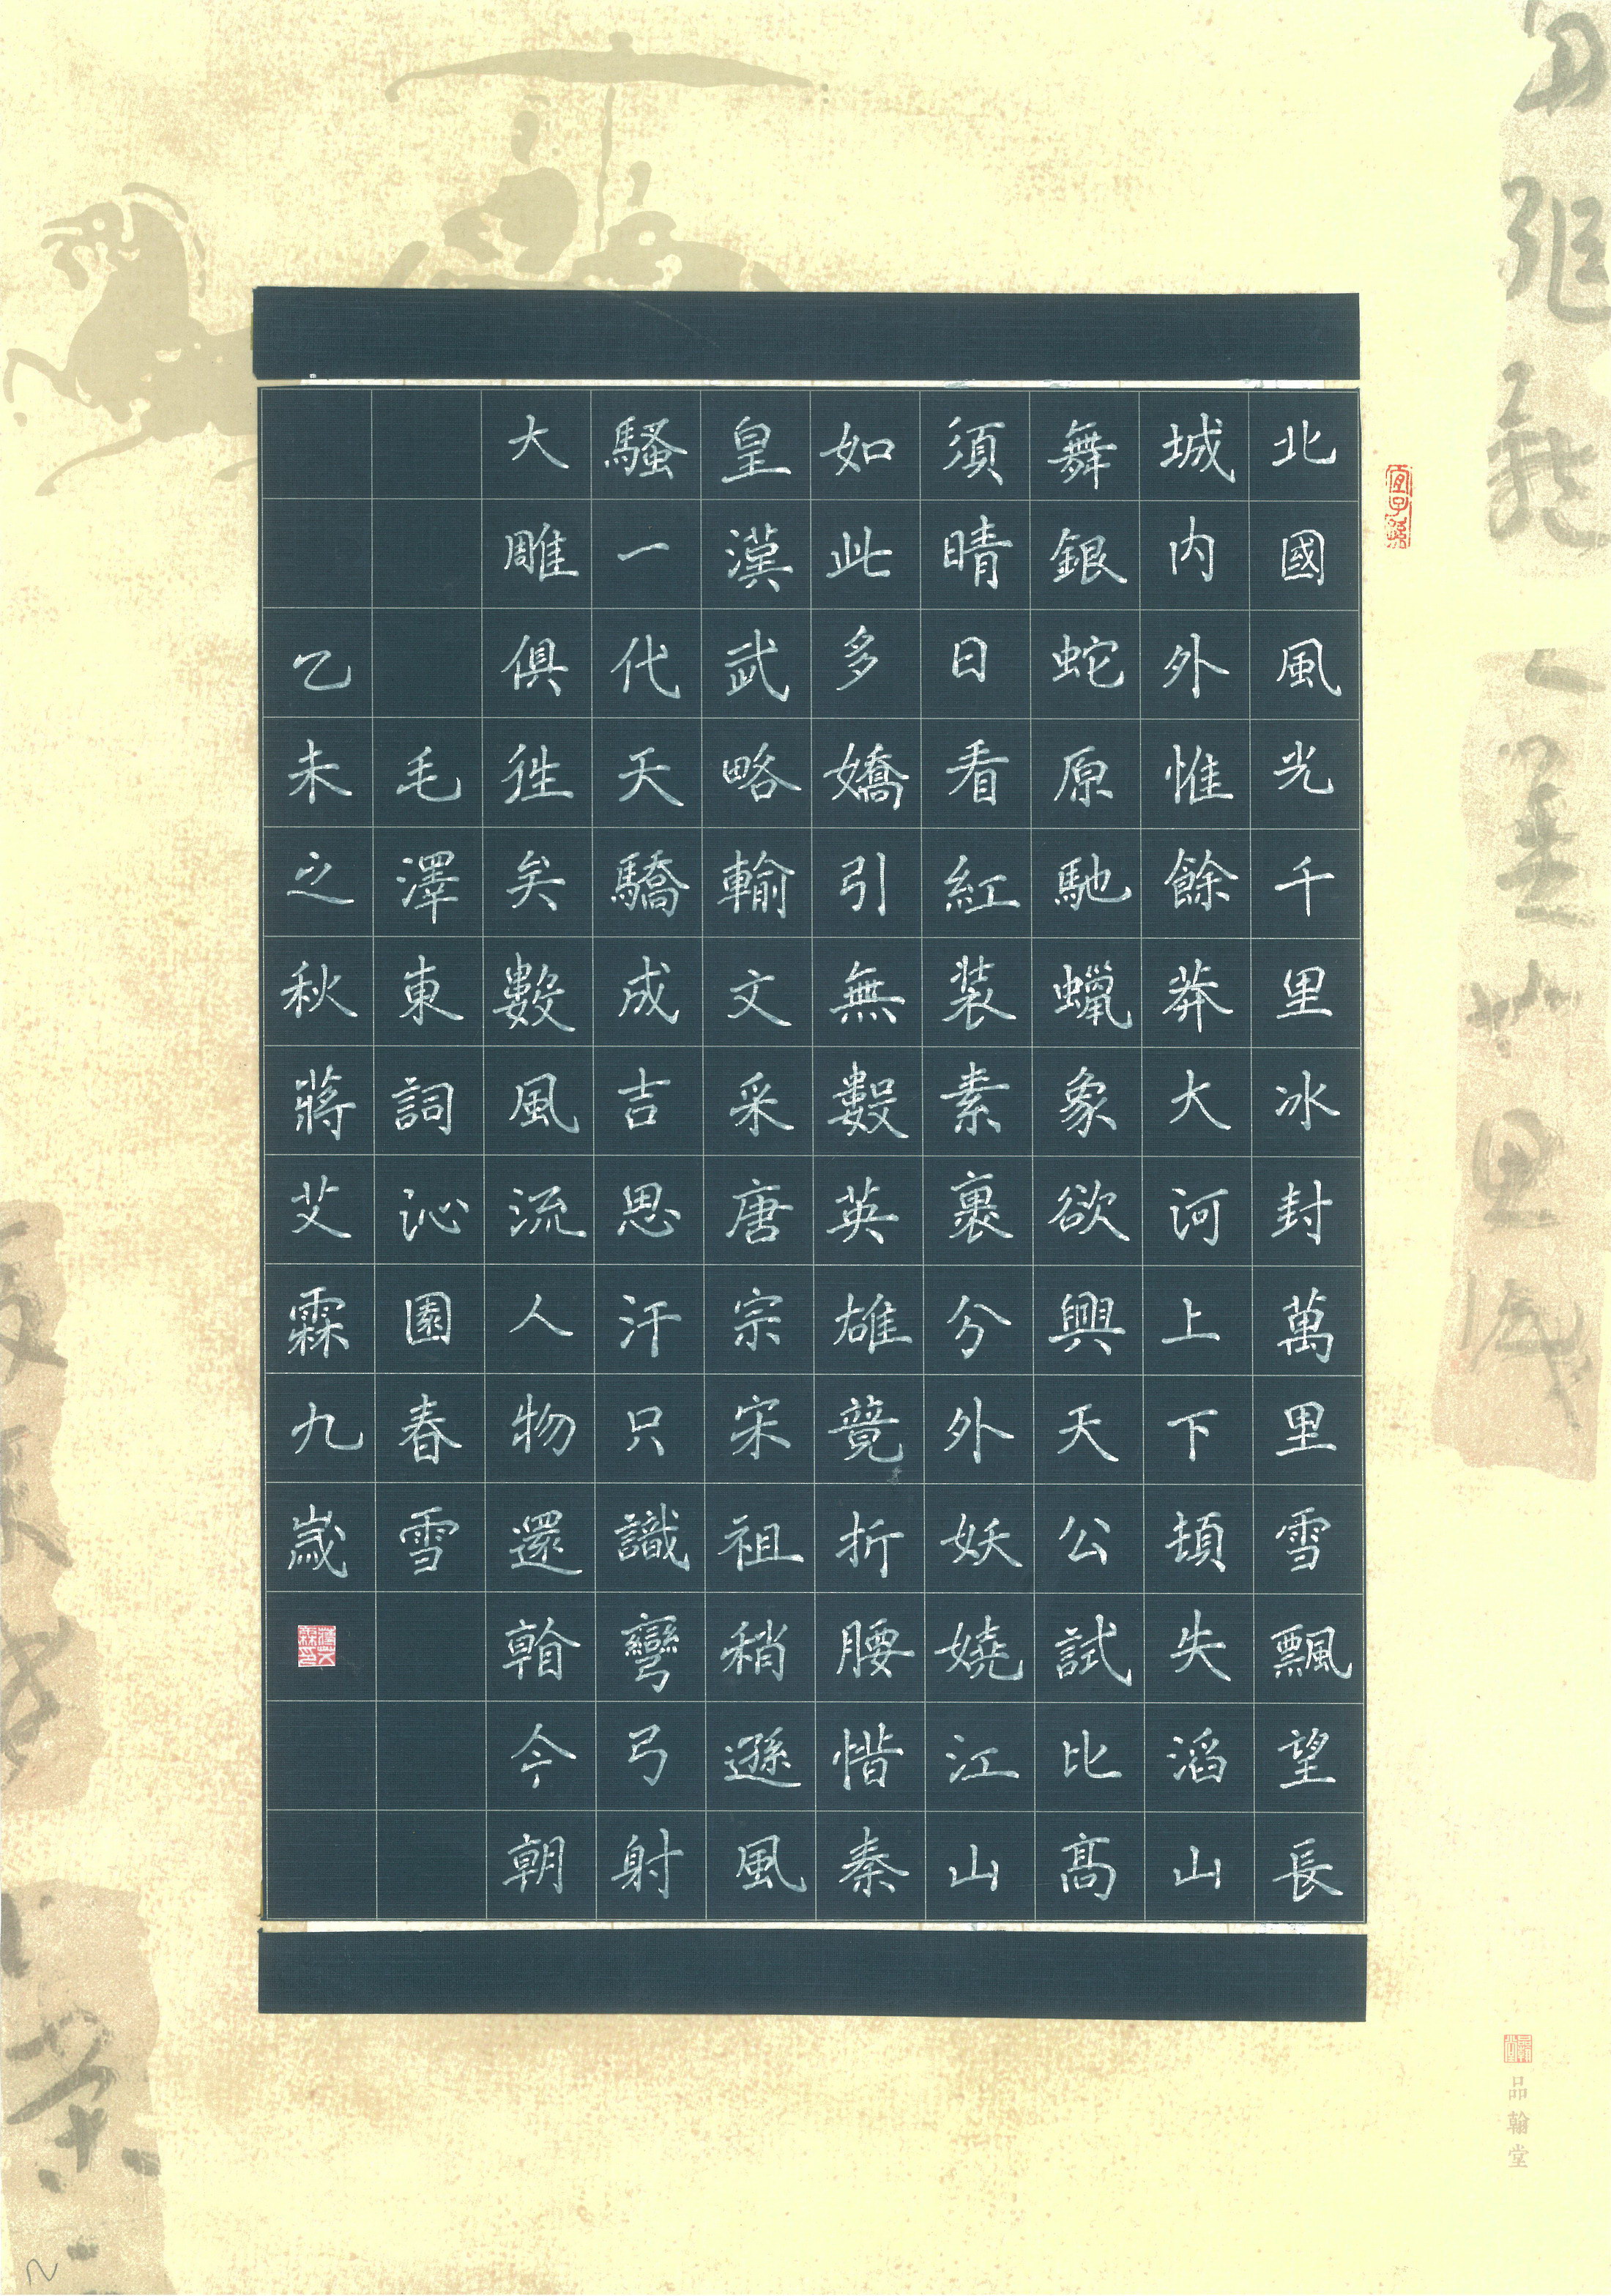 北國風光千里冰封萬里雪飄望長
城内外惟餘莽大河上下頓失滔山
舞銀蛇原馳蠟象欲興天公試比髙
須晴日看紅装素裹分外妖嬈江山
如此多嬌引無數英雄競折腰惜秦
皇漢武略輸文采唐宗宋祖稍遜風
騷一代天驕成吉思汗只識彎弓射
大雕俱徃矣數風流人物還看今朝
毛澤東詞沁園春雪
乙未之秋蔣艾霖九歲
宜子孫
品翰堂